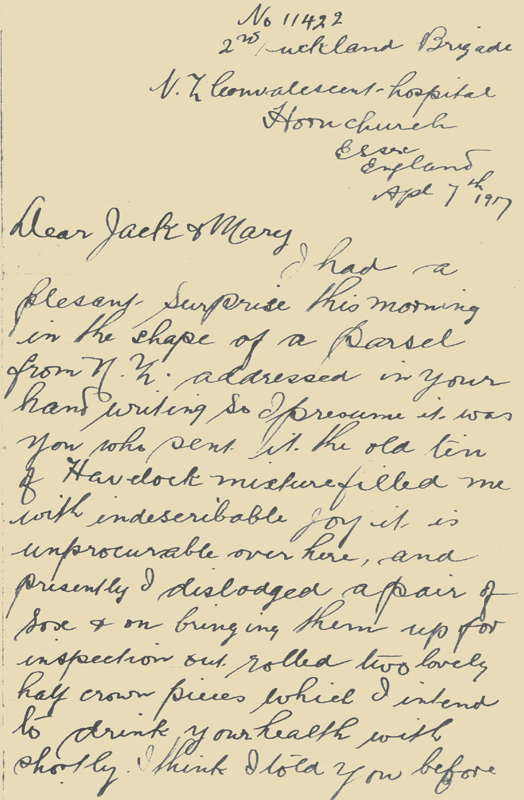 No 11422
2nd Auckland Brigade
N. Z Convalescent hospital
Hornchurch
Essex
England
Apl 7th 1917
Dear Jack & Mary
I had a
plesant surprise this morning
in the shape of a parsel
from N. Z. addressed in your
hand writing so I presume it was
you who sent it. the old tin
of Havelock mixture filled me
with indescribable joy it is
unprocurable over here, and
presently I dislodged a pair of
sox & on bringing them up for
inspection out rolled two lovely
half crown pieces which I intend
to drink your health with
shortly. I think I told you before